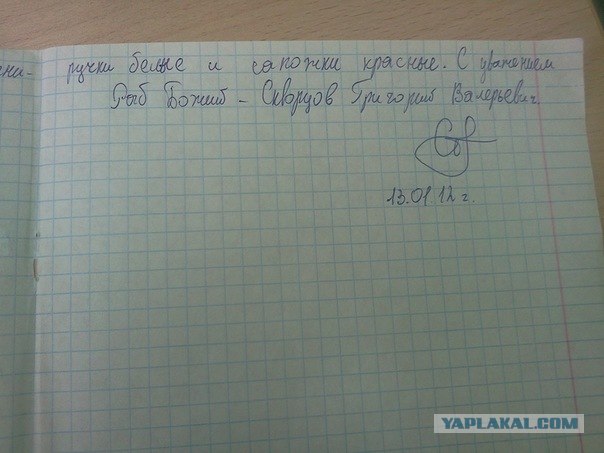 ручки белые и сапожки красные. С уважением
Раб Божий - Скворцов Григорий Валерьевич.
13.01.12 г.
YAPLAKAL.COM